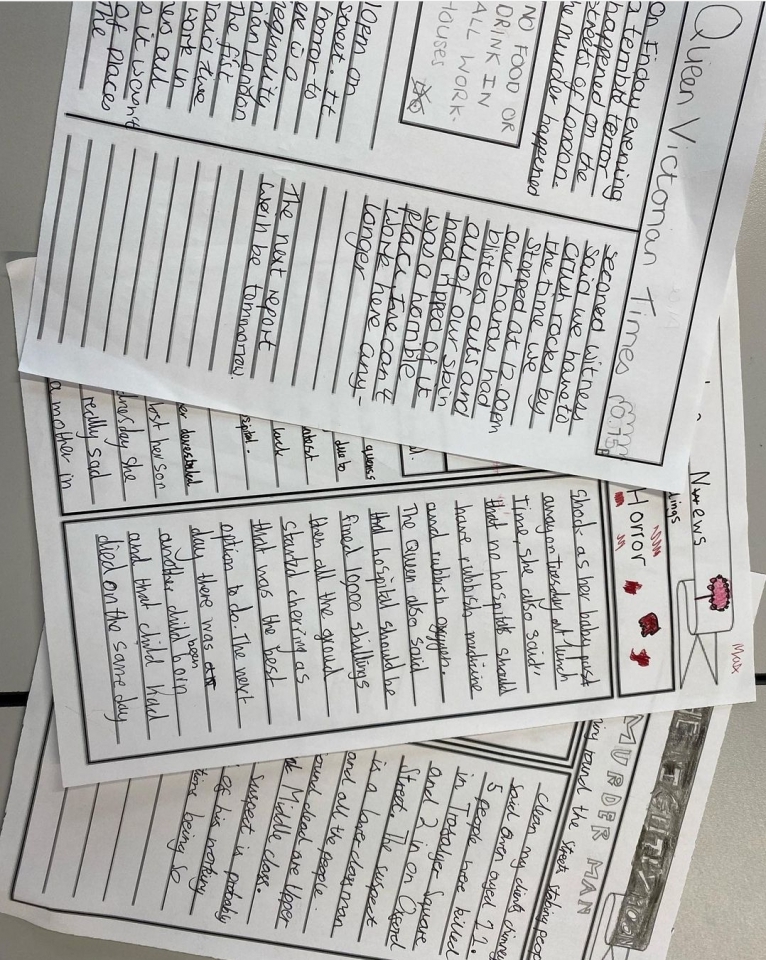 Queen Victorian Times
on Friday evening
a terrible terror
happened on the
streets of London.
the murder happened
NO FOOD OR
DRINK IN
ALL WORK.
HOUSES
street. It
horror to
ere is a
nan London
The fift
said Ive
work in
s it all
of places
The
secaned witness
said we have to
crush rocks by
the time we
stopped at 12.00pm
our hands had
blisters cuts and
all of our skin
had ripped of it
was a horrible
place Ive can't
work here any-
longer
The next report
werih be tommorrow.
News
Horror
Max
Shock as her baby just
away on Tuesday at lunch
time, she also said'
that no hospitals should
have rubbish medicine
and rubbish oxygen.
The Queen also said
that hospital should be
fined 10,000 shillings
then all the groud
started cherring as
that was the best
option to do. The next
day there was
another child born
been
and that child had
died on the same day
due to
luck
spital.
devestated
ost her son
dnesday she
really sad
a mother in
MURDER MAN
found the streets
clean my clients chimney
said oven aged 11.
5 people were killed
in Trafalger Square
and 2 in on Oxford
Street. The suspect
is a lower class man
and all the people
ound Mdead are Upper
Middle class.
Suspect is probably
of his working
time being so